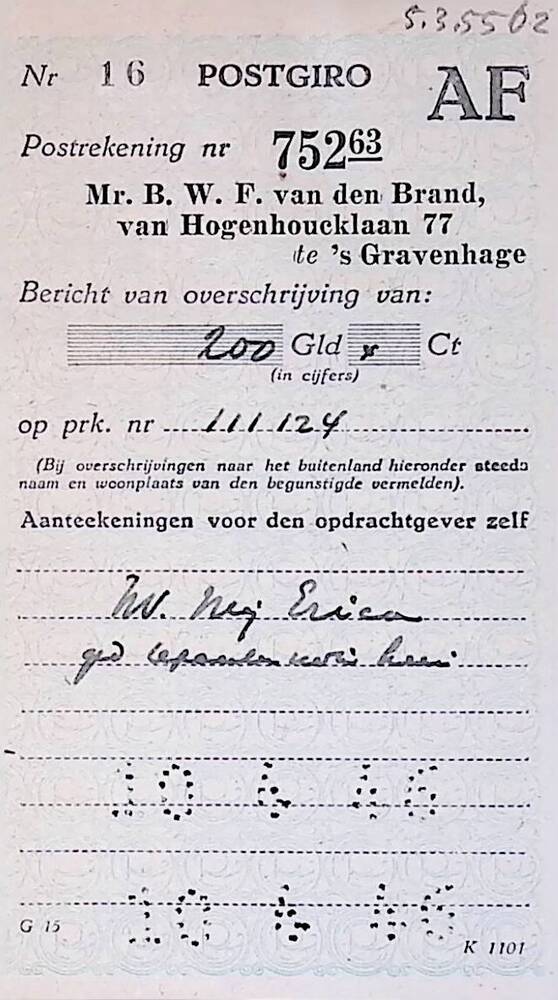 5.3.55 02
Nr 16 POSTGIRO AF
Postrekening nr 75263
Mr. B. W. F. van den Brand,
van Hogenhoucklaan 77
te 's Gravenhage
Bericht van overschrijving van:
200 Gld x Ct
(in cijfers)
op prk. nr 111124
(Bij overschrijvingen naar het buitenland hieronder steeds
naam en woonplaats van den begunstigde vermelden).
Aanteekeningen voor den opdrachtgever zelf
NV. Mij Erica
10 4 46
10 4 46
G 15
K 1101